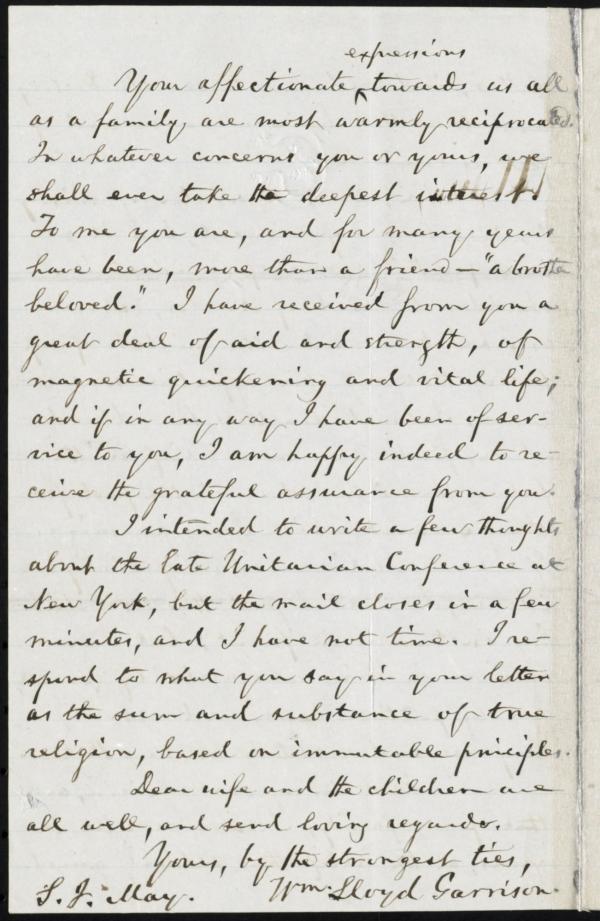 expressions
Your affectionate ‸ towards us all
as a family are most warmly reciprocated.
In whatever concerns you or yours, we
shall ever take the deepest interest.
To me you are, and for many years
have been, more than a friend — "a brother
beloved." I have received from you a
great deal of aid and strength, of
magnetic quickening and vital life;
and if in any way I have been of ser-
vice to you, I am happy indeed to re-
ceive the grateful assurance from you.
I intended to write a few thoughts
about the late Unitarian Conference at
New York, but the mail closes in a few
minutes, and I have not time. I re-
spond to what you say in your letter
as the sum and substance of true
religion, based on immutable priciples.
Dear wife and the children are
all well, and send loving regards.
Yours, by the strongest ties,
S. J. May. Wm. Lloyd Garrison.